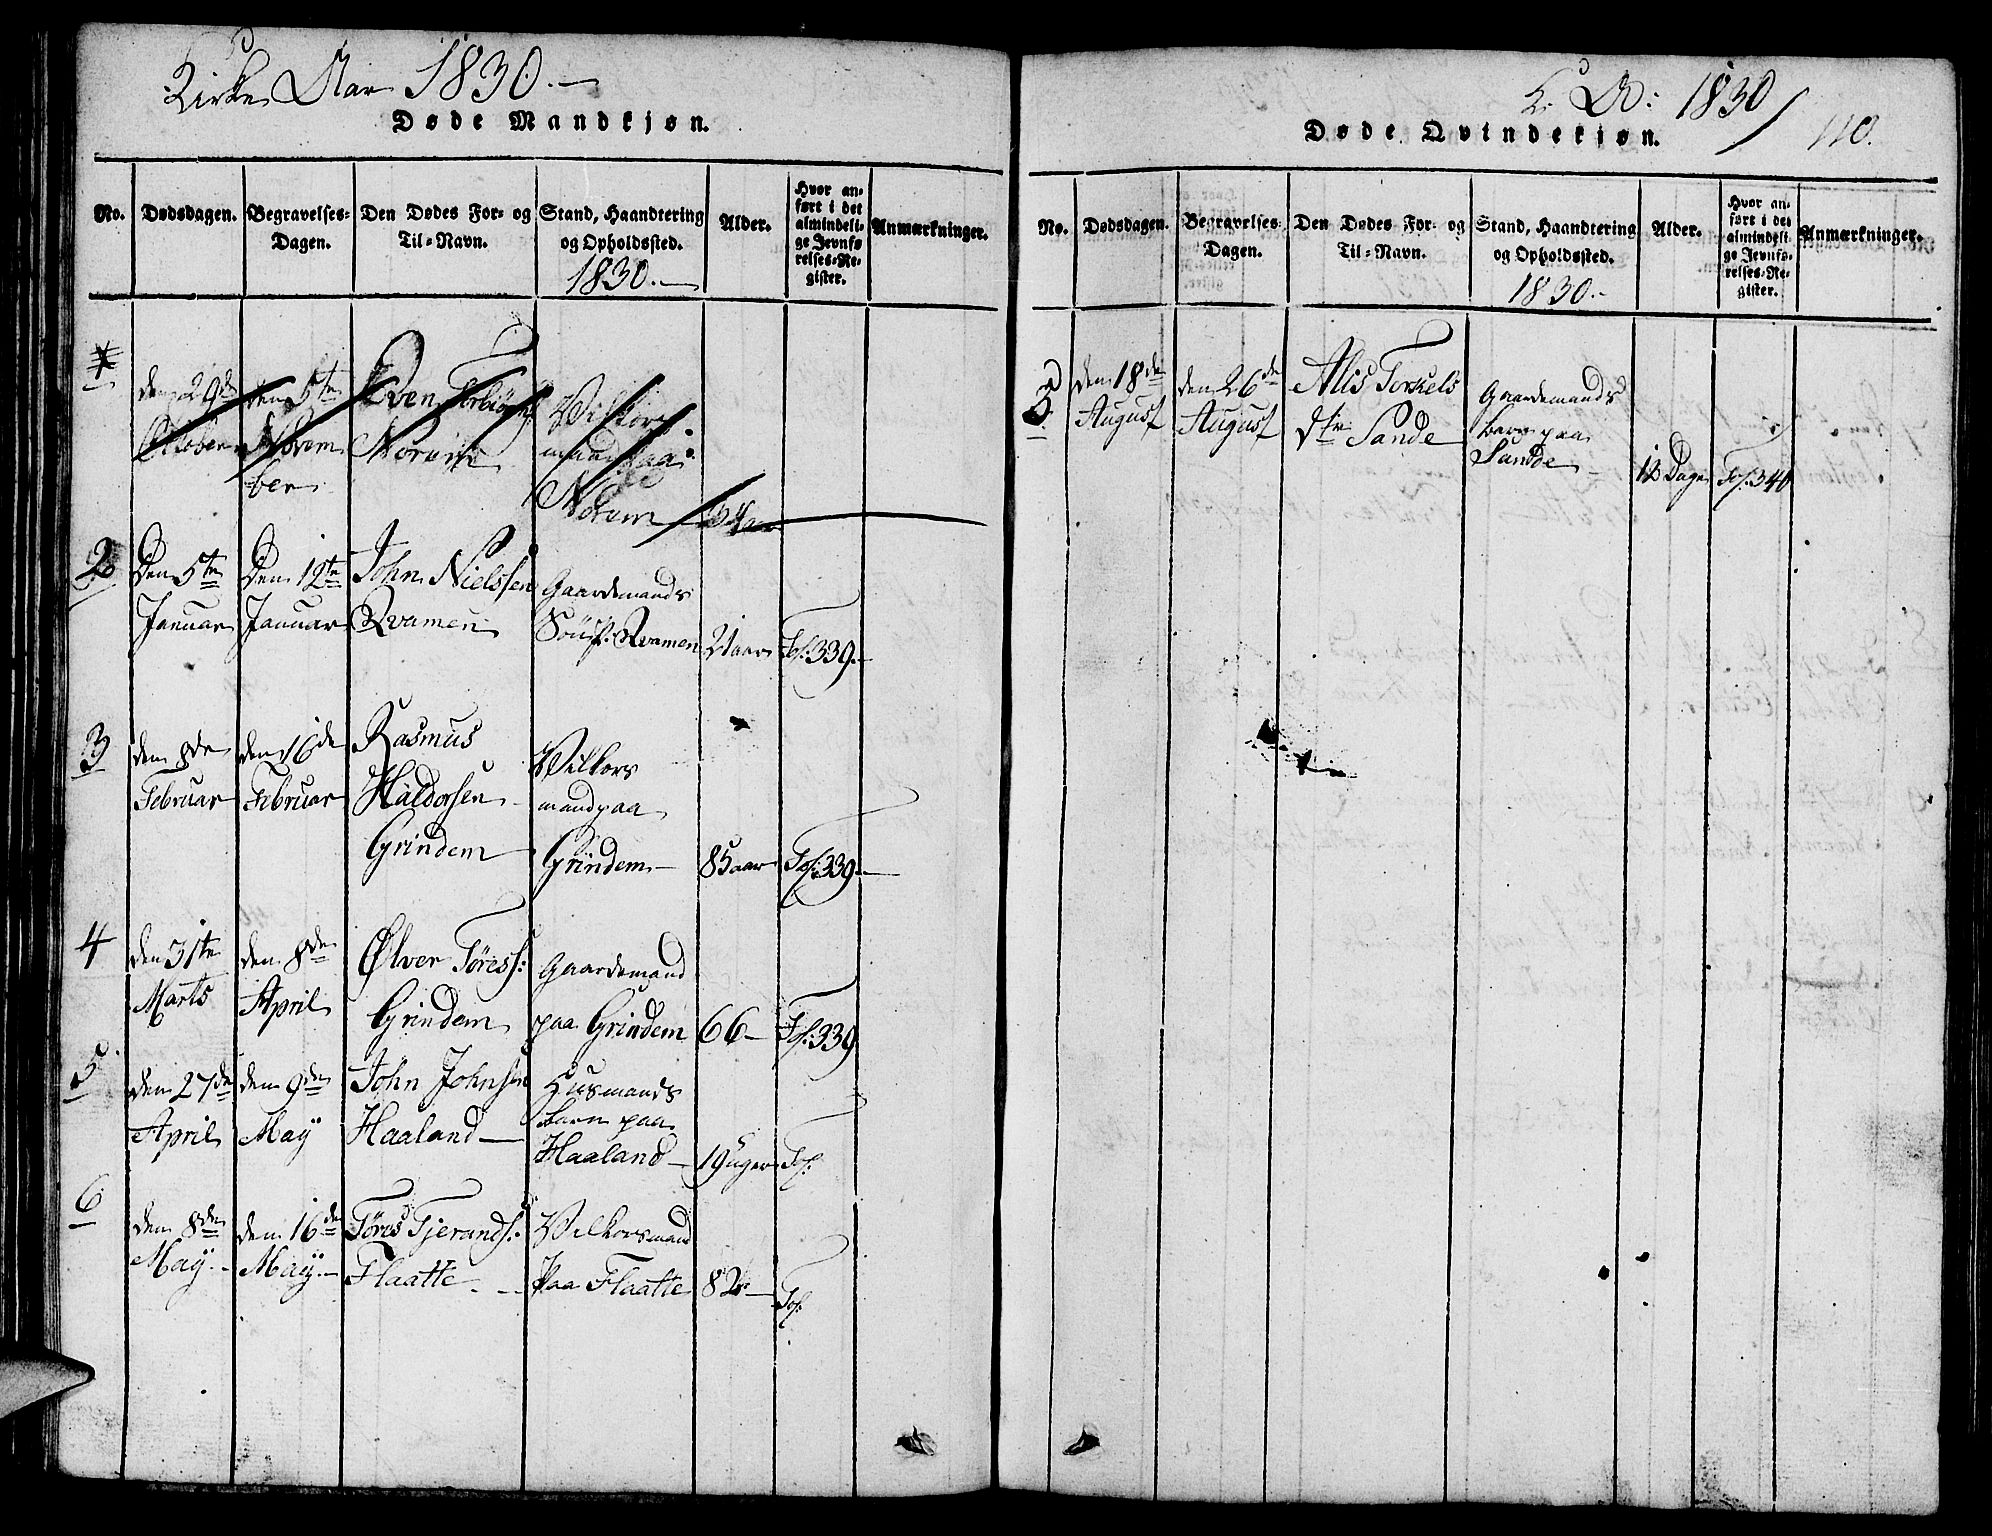 Kirke Aar 1830.
Døde Mandkjøn.
No.
Dødsdagen.
Begravelses-
Dagen.
Den Dødes For- og
Til-Navn.
Stand, Haandtering
og Opholdssted.
1830.
Alder.
Hvor an-
ført i det
almindeli-
ge Jevnfø
relses-Re-
gister.
Anmærkninger.
den 29de
Oktober
den 5te
Novem
ber
Norum
Vilkors
mand paa
Norum
2
Den 5te
Januar
Den 12te
Januar
John Nielssen
Qvamen
Gaardemands
Søn p. Qvamen
21 aar
Fol: 339.
3
den 8de
Februar
den 16de
Februar
Rasmus
Haldorsen
Grindem
Vilkors
mand paa
Grindem
85 aar
Fol: 339.
4
den 31te
Marts
den 8de
April
Ølver Tøress:
Grindem
Gaardemand
paa Grindem
66
Fol: 339
5
den 27de
April
den 9de
May
John Johnsen
Haaland
Husmands
Barn paa
Haaland
19 uger
Fol:
6
den 8de
May.
den 16de
May.
Tøres Tjerands:
Flaatte
Vilkorsmand
paa Flaatte
82
Fol:
K: A: 1830
110.
Døde Qvindekjøn.
No.
Dødsdagen.
Begravelses-
Dagen.
Den Dødes For- og
Til-Navn.
Stand, Haandtering
og Opholdssted.
1830.
Alder.
Hvor an-
ført i det
almindeli-
ge Jevnfø-
relses-Re-
gister.
Anmærkninger.
den 18de
August
den 26de
August
Alis Torkels
dtr Sande
Gaardemands
Barn paa
Sande
12 Dage
Fol. 340